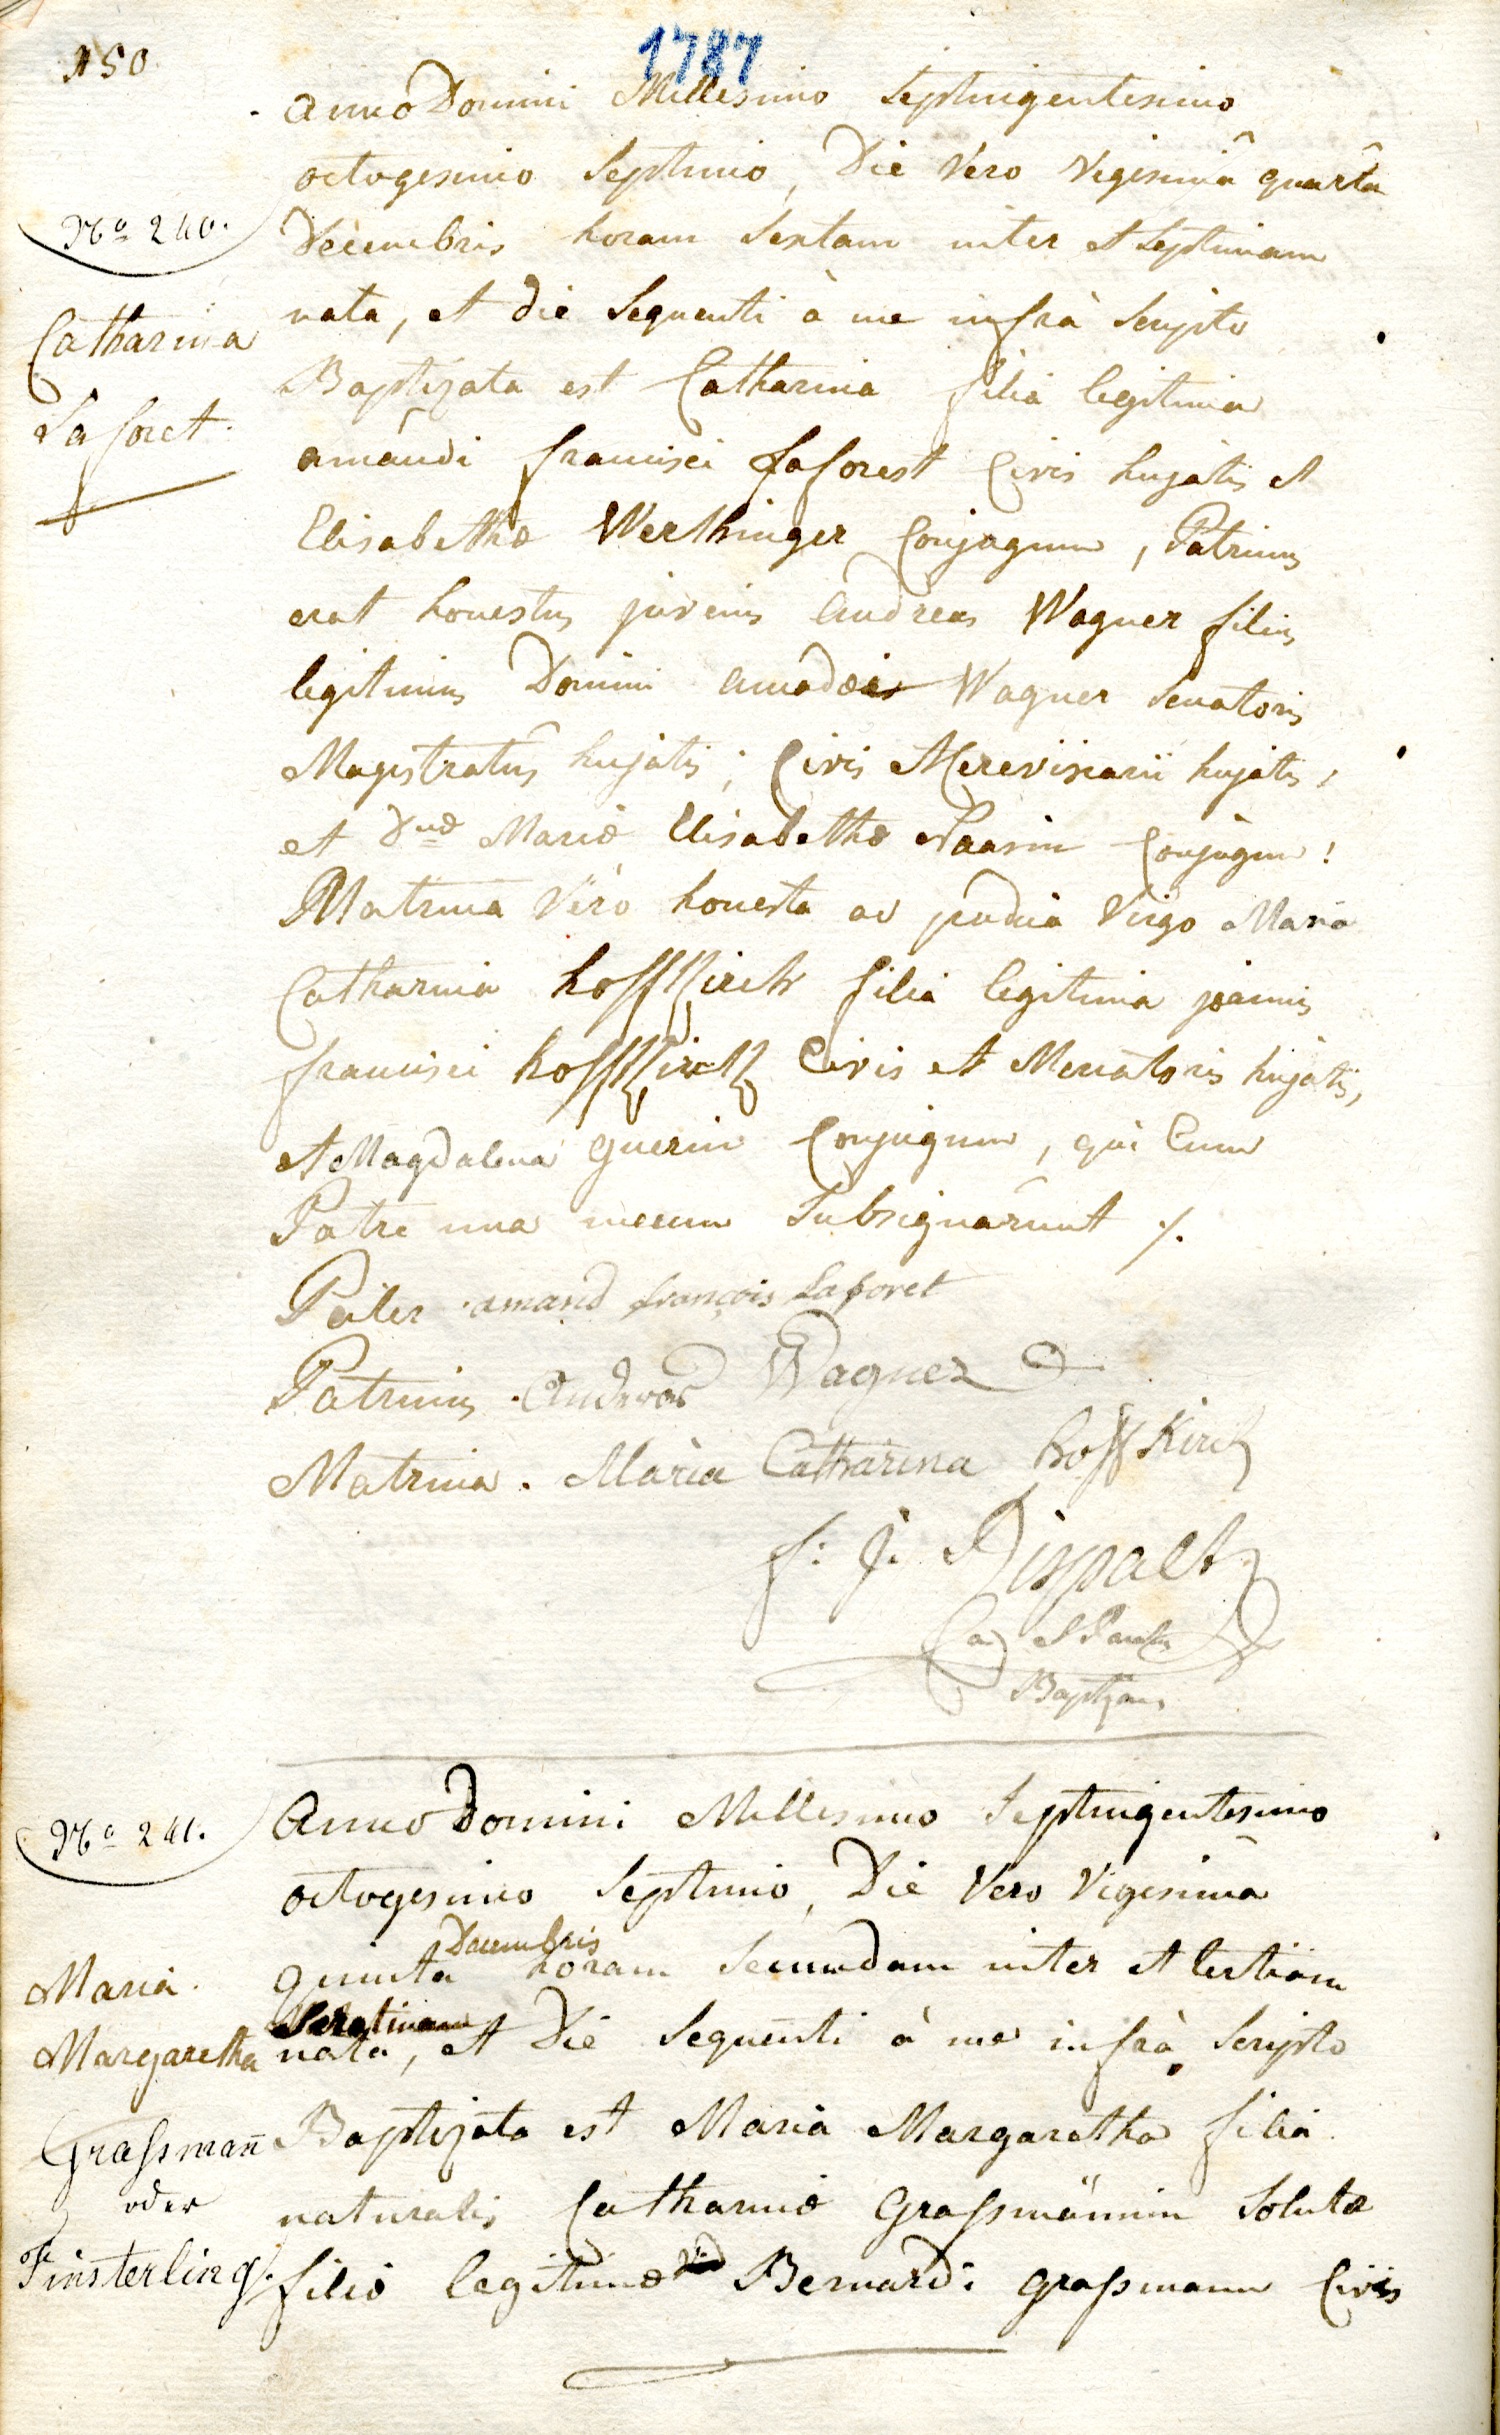 150.
1787
Anno Domini Millesimo Septingentesimo
octogesimo Septimo, Die Vero Vigesimâ quartâ
Decembris horam Sextam inter et Septimam
nata, et die Sequenti à me infrà Scripto
Baptizata est Catharina filia legitima
amandi francisci Laforest Civis hujatis et
Elisabethæ Werthinger Conjugum, Patrinus
erat honestus juvenis Andreas Wagner filius
legitimus Domini Amadei Wagner Senatoris
Magistratus hujatis; Civis Cerevisiarii hujatis,
et Dnæ Mariæ Elisabethæ Conjugum!
Matrina Vero honesta ac pudica Virgo Maria
Catharina hoffkirch filia legitima joannis
francisci hoffkirch Civis et Mercatoris hujatis,
et Magdalena guerin Conjugum, qui Cum
Patre una mecum Subsignârunt ./.
Pater amand françois Laforet
Patrinus Andreas Wagner
Matrina. Maria Catharina hoffkirch
f: j:
Baptizans
No 240.
Catharina
Laforet.
No 241.
Anno Domini Millesimo Septingentesimo
octogesimo Septimo, Die Vero Vigesima
Decembris
quinta horam Secundam inter et tertiam
Serotinam
nata, et Die Sequenti à me infrà Scripto
Baptizata est Maria Margaretha filia
naturalis Catharinæ Graſsmännin Solutæ
filiæ legitimæ Bernardi graſsmann Civis
Maria
Margaretha
Graſsmañ
oder
Finsterling.